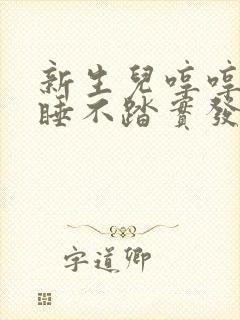 新生兒哼哼
睡不踏實發
字道卿